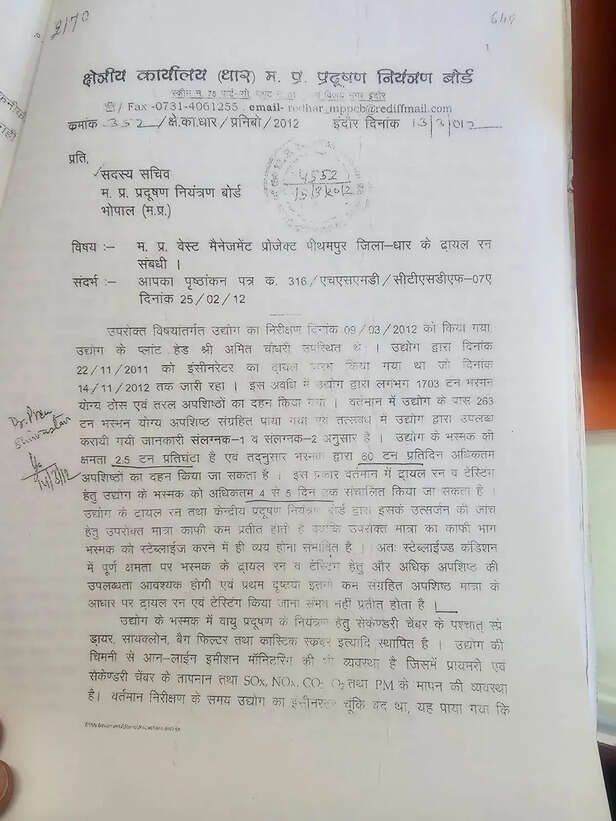 2170
644
1
क्षेत्रीय कार्यालय (धार) म. प्र. प्रदूषण नियंत्रण बोर्ड
स्कीम न. 78 पार्ट- विजय नगर इंदौर
/ Fax -0731-4061255 . email- rodhar_mppcb@rediffmail.com
क्रमांक 352 /क्षे.का.धार/प्रनिबो/2012 इंदौर दिनांक 13/3/012
प्रति,
सदस्य सचिव
म. प्र. प्रदूषण नियंत्रण बोर्ड
भोपाल (म.प्र.)
4552
15/3/2012
विषय :— म. प्र. वेस्ट मैनेजमेंट प्रोजेक्ट पीथमपुर जिला–धार के ट्रायल रन
संबधी ।
संदर्भ :— आपका पृष्ठांकन पत्र क. 316/एचएसएमडी/सीटीएसडीएफ–07ए
दिनांक 25/02/12
उपरोक्त विषयांतर्गत उद्योग का निरीक्षण दिनांक 09/03/2012 को किया गया,
उद्योग के प्लांट हेड श्री अमित चौधरी उपस्थित थे । उद्योग द्वारा दिनांक
22/11/2011 को इंसीनरेटर का ट्रायल किया गया था जो दिनांक
14/11/2012 तक जारी रहा । इस अवधि में उद्योग द्वारा लगभग 1703 टन भस्मन
योग्य ठोस एवं तरल अपशिष्ठों का दहन किया गया । वर्तमान में उद्योग के पास 263
टन भस्मन योग्य अपशिष्ठ संग्रहित पाया गया एवं तत्सवध में उद्योग द्वारा उपलब्ध
करायी गयी जानकारी संलग्नक–1 व संलग्नक–2 अनुसार है । उद्योग के भस्मक की
क्षमता 2.5 टन प्रतिघंटा है एवं तद्नुसार भस्मक द्वारा 60 टन प्रतिदिन अधिकतम
अपशिष्ठों का दहन किया जा सकता है । इस प्रकार वर्तमान में ट्रायल रन व टेस्टिंग
हेतु उद्योग के भस्मक को अधिकतम 4 से 5 दिन तक संचालित किया जा सकता है ।
उद्योग के ट्रायल रन तथा केन्द्रीय प्रदूषण नियंत्रण बोर्ड द्वारा इसके उत्सर्जन की जांच
हेतु उपरोक्त मात्रा काफी कम प्रतीत होती है क्योंकि उपरोक्त मात्रा का काफी भाग
भस्मक को स्टेब्लाईज करने में ही व्यय होना संभावित है । अतः स्टेब्लाईज्ड कंडिशन
में पूर्ण क्षमता पर भस्मक के ट्रायल रन व टेस्टिंग हेतु और अधिक अपशिष्ठ की
उपलब्धता आवश्यक होगी एवं प्रथम दृष्टया इतनी कम संग्रहित अपशिष्ठ मात्रा के
आधार पर ट्रायल रन एवं टेस्टिंग किया जाना संभव नहीं प्रतीत होता है ।
उद्योग के भस्मक में वायु प्रदूषण के नियंत्रण हेतु सेकेण्डरी चेंबर के पश्चात् स्प्रे
डायर, सायक्लोन, बैग फिल्टर तथा कास्टिक स्क्रबर इत्यादि स्थापित है । उद्योग की
चिमनी से आन–लाईन इमीशन मॉनिटरिंग की भी व्यवस्था है जिसमें प्रायमरी एवं
सेकेण्डरी चेंबर के तापमान तथा SOx, NOx, CO, O2 तथा PM के मापन की व्यवस्था
है। वर्तमान निरीक्षण के समय उद्योग का इंसीनरेटर चूंकि बंद था, यह पाया गया कि